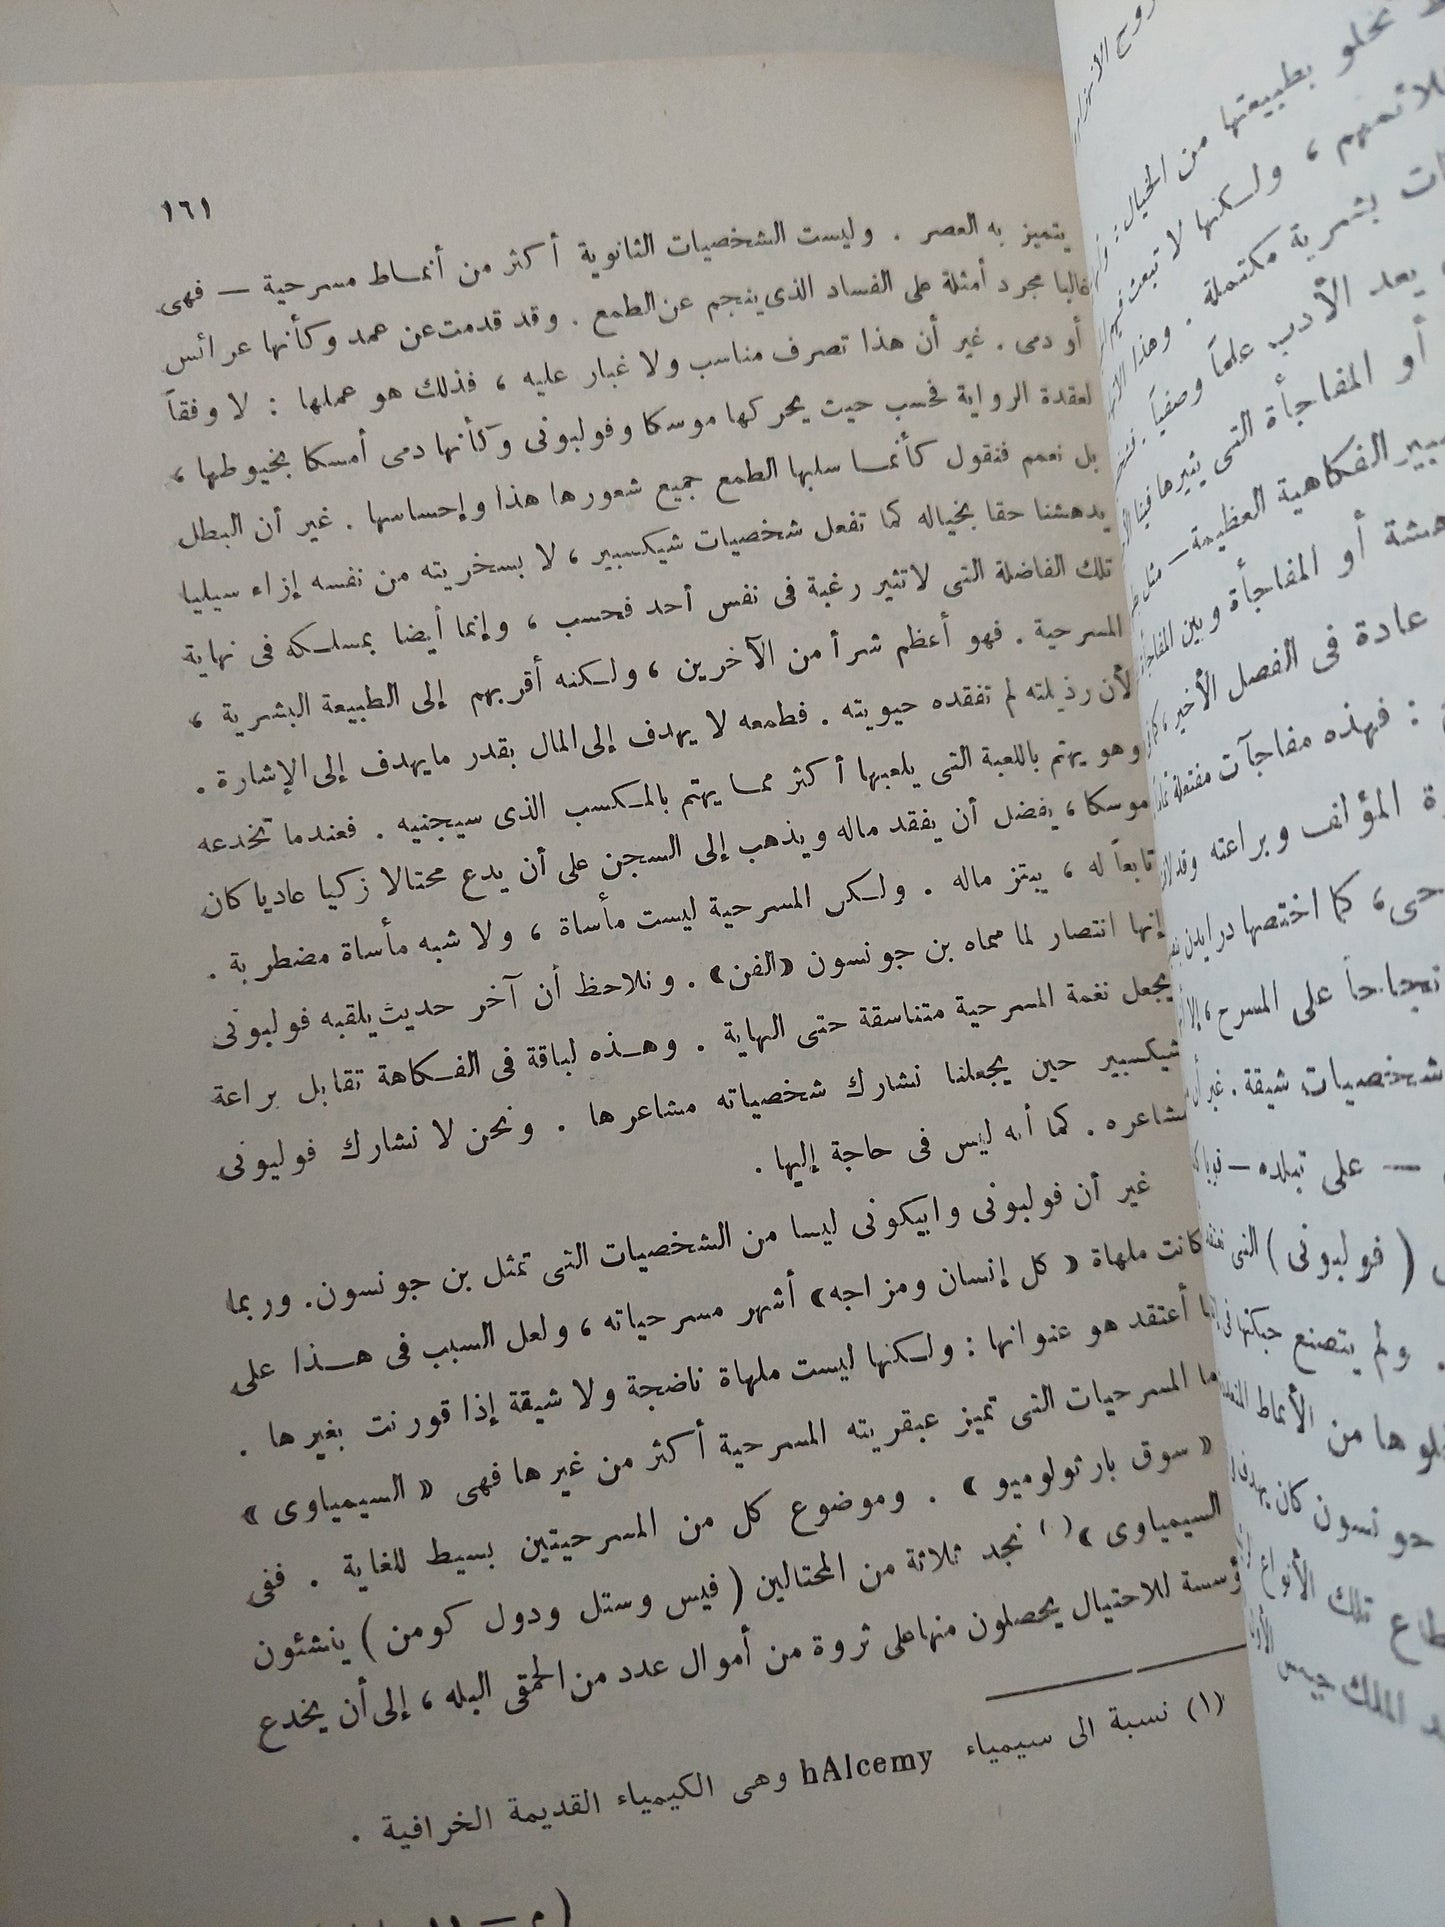 ١٦١
يتميز به العصر . وليست الشخصيات الثانوية أكثر من أنماط مسرحية — فهى
غالبا مجرد أمثلة على الفساد الذى ينجم عن الطمع . وقد قدمت عن عمد وكأنها عرائس
أو دمى . غير أن هذا تصرف مناسب ولا غبار عليه ، فذلك هو عملها : لا وفقاً
لعقدة الرواية فحسب حيث يحركها موسكا وفولبونى وكأنها دمى أمسكا بخيوطها ،
بل نعمم فنقول كأنما سلبها الطمع جميع شعورها هذا وإحساسها . غير أن البطل
يدهشنا حقا بخياله كما تفعل شخصيات شيكسبير ، لا بسخريته من نفسه إزاء سيليا
تلك الفاضلة التى لا تثير رغبة فى نفس أحد فحسب ، وإنما أيضا بمسلكه فى نهاية
المسرحية . فهو أعظم شراً من الآخرين ، ولكنه أقربهم إلى الطبيعة البشرية ،
لأن رذيلته لم تفقده حيويته . فطمعه لا يهدف إلى المال بقدر ما يهدف إلى الإشارة .
وهو يهتم باللعبة التى يلعبها أكثر مما يهتم بالمكسب الذى سيجنيه . فعندما تخدعه
موسكا ، يفضل أن يفقد ماله ويذهب إلى السجن على أن يدع محتالا زكيا عاديا كان
تابعاً له ، يبتز ماله . ولكن المسرحية ليست مأساة ، ولا شبه مأساة مضطربة .
إنها انتصار لما سماه بن جونسون «الفن» . ونلاحظ أن آخر حديث يلقيه فولبونى
يجعل نغمة المسرحية متناسقة حتى النهاية . وهذه لباقة فى الفكاهة تقابل براعة
شيكسبير حين يجعلنا نشارك شخصياته مشاعرها . ونحن لا نشارك فوليونى
مشاعره . كما أنه ليس فى حاجة إليها .
غير أن فولبونى وابيكونى ليسا من الشخصيات التى تمثل بن جونسون. وربما
كانت ملهاة « كل إنسان ومزاجه» أشهر مسرحياته ، ولعل السبب فى هذا على
ما أعتقد هو عنوانها : ولكنها ليست ملهاة ناضجة ولا شيقة إذا قورنت بغيرها .
أما المسرحيات التى تميز عبقريته المسرحية أكثر من غيرها فهى « السيمياوى »
« سوق بارثولوميو » . وموضوع كل من المسرحيتين بسيط للغاية . ففى
السيمياوى » (١) نجد ثلاثة من المحتالين ( فيس وستل ودول كومن ) ينشئون
ؤسسة للاحتيال يحصلون منها على ثروة من أموال عدد من الحمقى البله ، إلى أن يخدع
(١) نسبة الى سيمياء hAlcemy وهى الكيمياء القديمة الخرافية .
تخلو بطبيعتها من الخيال :
، ولكنها لا تبعث فيهم
بشرية مكتملة . وهذا
يعد الأدب علماً وصفياً .
أو المفاجأة التى يثيرها فينا
الفكاهية العظيمة — مثل
أو المفاجأة وبين
عادة فى الفصل الأخير ،
: فهذه مفاجآت مفتعلة
المؤلف وبراعته
، كما اختصها درايدن
نجاحاً على المسرح ، إلا
شخصيات شيقة . غير أن
— على تبلده —
( فولبونى ) التى
. ولم يتصنع حبكتها فى
من الأنماط
جونسون كان يهدف
تلك الأنواع
الملك جيمس